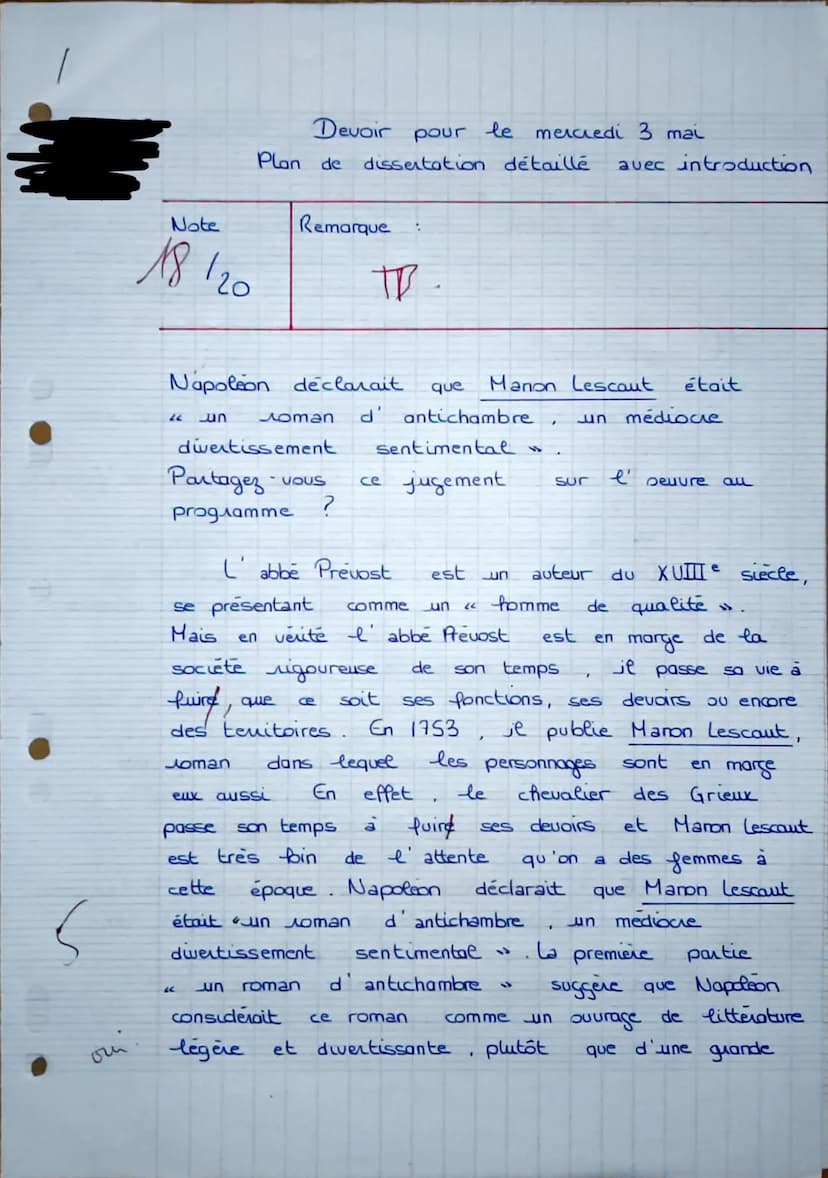 1
Devoir pour le mercredi 3 mai
Plan de dissertation détaillé avec introduction
Note
Remarque :
18/20
TB.
Napoléon déclarait que Manon Lescaut était
« un roman d'antichambre, un médiocre
divertissement sentimental ».
Partagez-vous ce jugement sur l'oeuvre au
programme ?
L'abbé Prévost est un auteur du XVIIIe siècle,
se présentant comme un « homme de qualité ».
Mais en vérité l'abbé Prévost est en marge de la
société rigoureuse de son temps, il passe sa vie à
fuire, que ce soit ses fonctions, ses devoirs ou encore
des territoires. En 1753, il publie Manon Lescaut,
roman dans lequel les personnages sont en marge
eux aussi En effet, le chevalier des Grieux
passe son temps à fuire ses devoirs et Manon Lescaut
est très loin de l'attente qu'on a des femmes à
cette époque. Napoléon déclarait que Manon Lescaut
était « un roman d'antichambre, un médiocre
divertissement sentimental ». La première partie
« un roman d'antichambre » suggère que Napoléon
considérait ce roman comme un ouvrage de littérature
oui légère et divertissante, plutôt que d'une grande